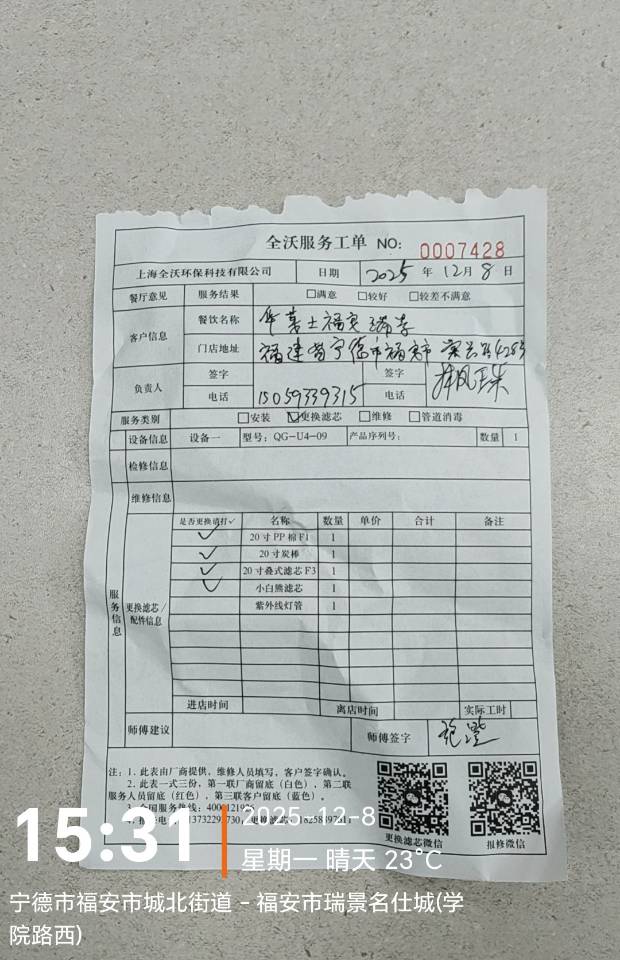 全沃服务工单 NO: 0007428
上海全沃环保科技有限公司 日期 2025 年 12 月 8 日
餐厅意见 服务结果 □满意 □较好 □较差不满意
客户信息 餐饮名称 华莱士福安瑞景
门店地址 福建省宁德市福安市 428号
负责人 签字 签字
电话 15059339315 电话
服务类别 □安装 ☑更换滤芯 □维修 □管道消毒
设备信息 设备一 型号: QG-U4-09 产品序列号: 数量 1
检修信息
维修信息
服务信息
更换滤芯/配件信息
是否更换请打✓ 名称 数量 单价 合计 备注
✓ 20寸PP棉F1 1
✓ 20寸炭棒 1
✓ 20寸叠式滤芯F3 1
✓ 小白熊滤芯 1
紫外线灯管 1
进店时间 离店时间 实际工时
师傅建议 师傅签字
注: 1. 此表由厂商提供, 维修人员填写, 客户签字确认。
2. 此表一式三份, 第一联厂商留底 (白色), 第二联
服务人员留底 (红色), 第三联客户留底 (蓝色)。
3. 全国服务热线:
更换滤芯微信 报修微信
15:31
2025-12-8
星期一 晴天 23℃
宁德市福安市城北街道 - 福安市瑞景名仕城(学
院路西)